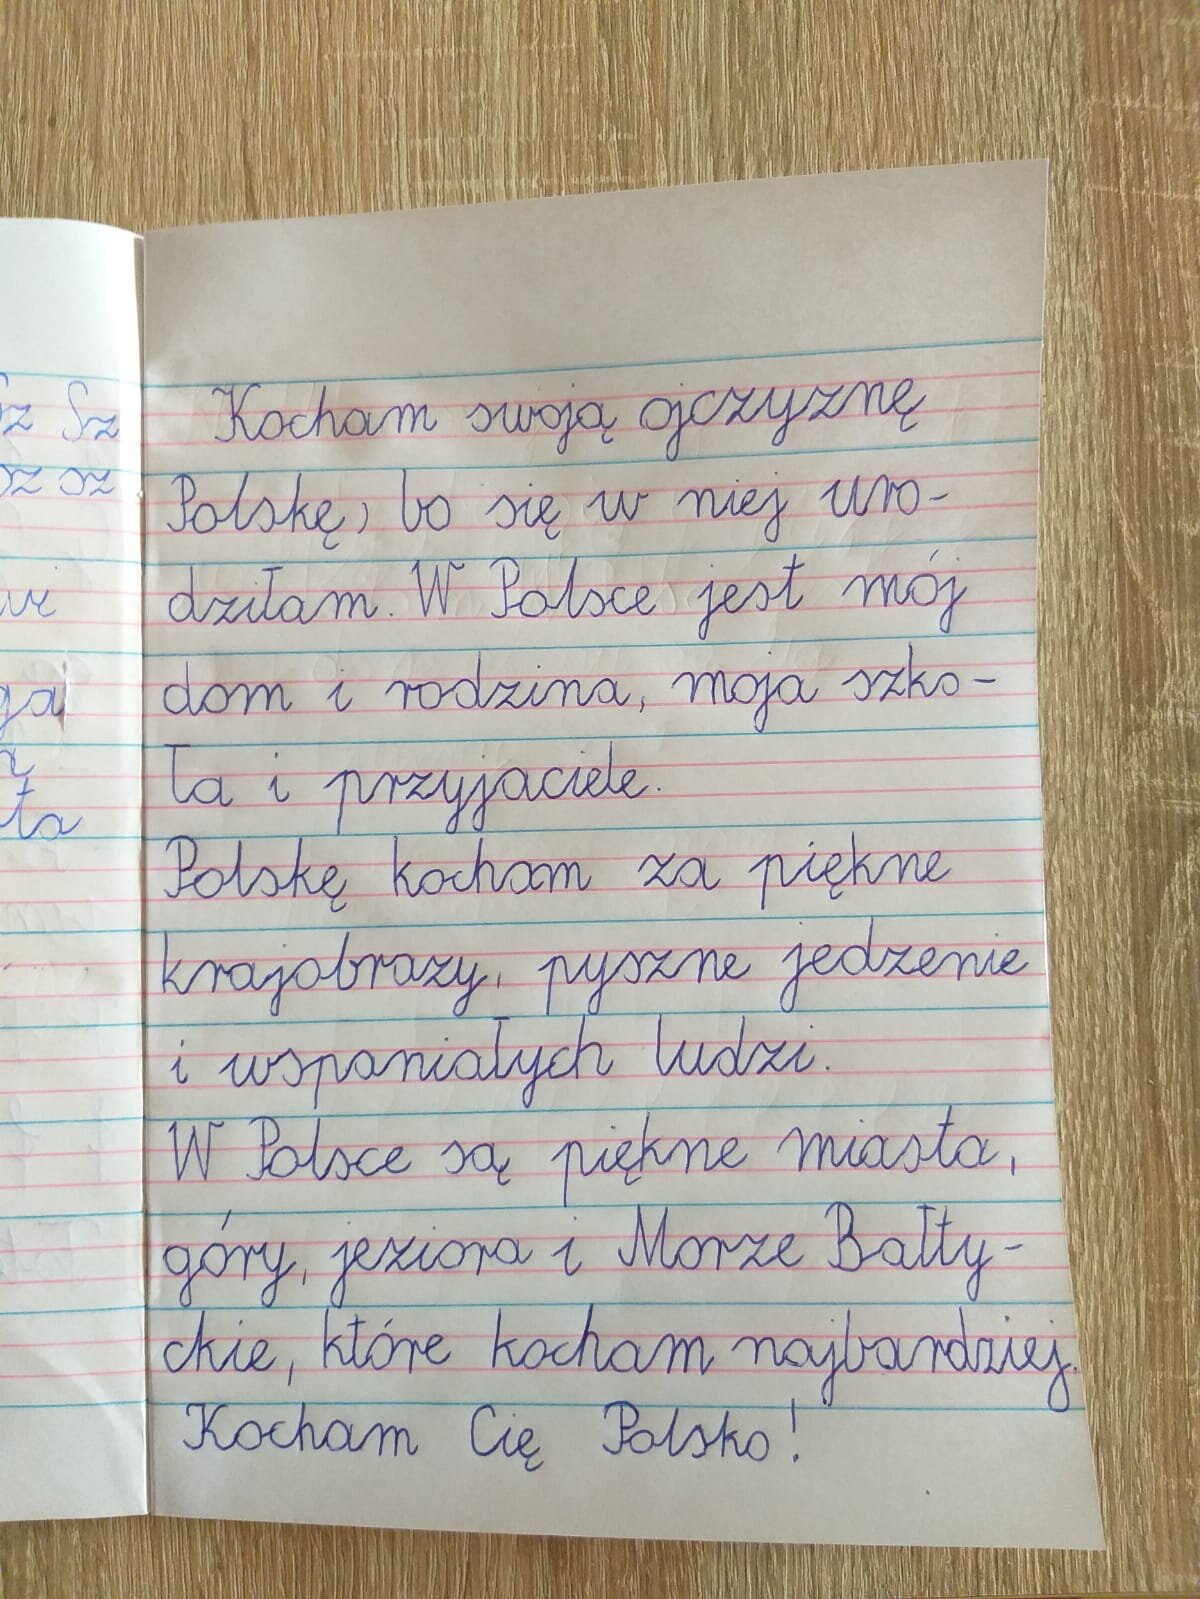 Sz Sz
sz sz
ga
ła
Kocham swoją ojczyznę
Polskę, bo się w niej uro-
dziłam. W Polsce jest mój
dom i rodzina, moja szko-
ła i przyjaciele.
Polskę kocham za piękne
krajobrazy, pyszne jedzenie
i wspaniałych ludzi.
W Polsce są piękne miasta,
góry, jeziora i Morze Bałty-
ckie, które kocham najbardziej.
Kocham Cię Polsko!